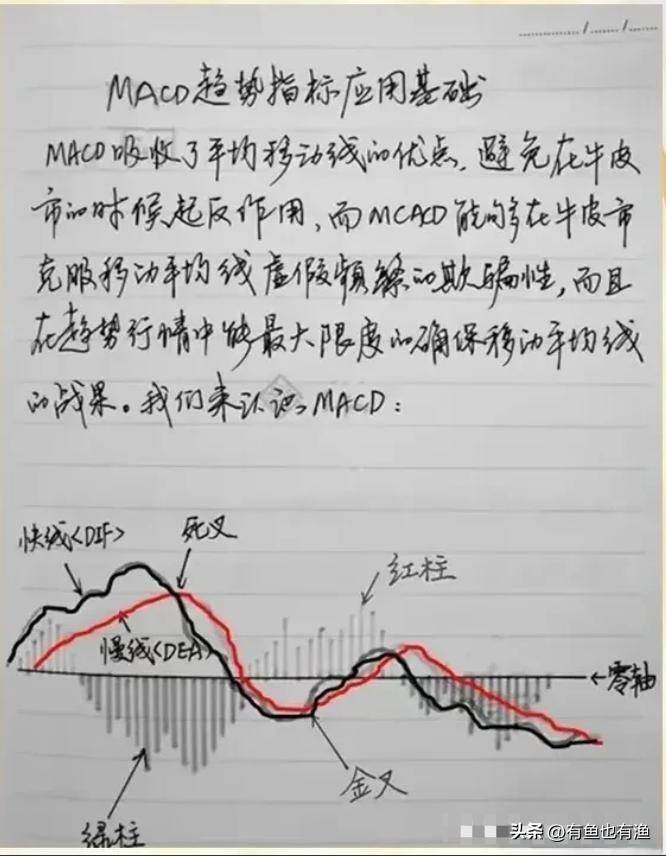 MACD趋势指标应用基础
MACD吸收了平均移动线的优点,避免在牛皮
市的时候起反作用,而MCACD能够在牛皮市
克服移动平均线虚假频繁的欺骗性,而且
在趋势行情中能最大限度的确保移动平均线
的战果。我们来认识MACD:
快线<DIF>
死叉
红柱
慢线<DEA>
←零轴
金叉
绿柱
头条 @有鱼也有渔